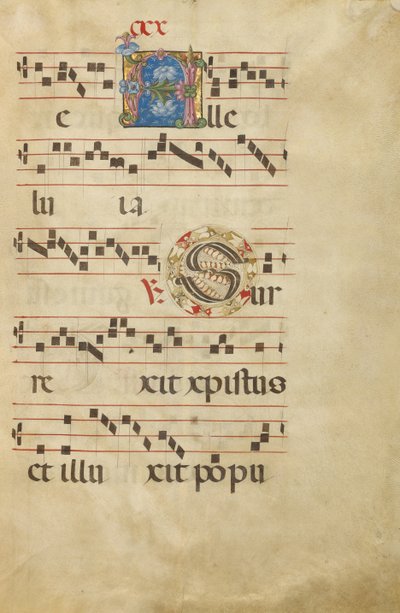 cxx
e Alle
lu ia
℣. Sur
re xit xpistus
et illu xit popu